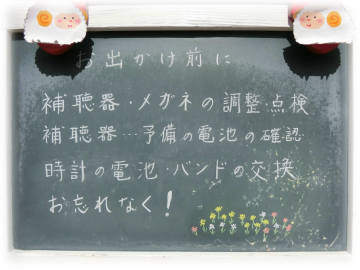 お出かけ前に
補聴器・メガネの調整・点検
補聴器…予備の電池の確認
時計の電池・バンドの交換
お忘れなく!